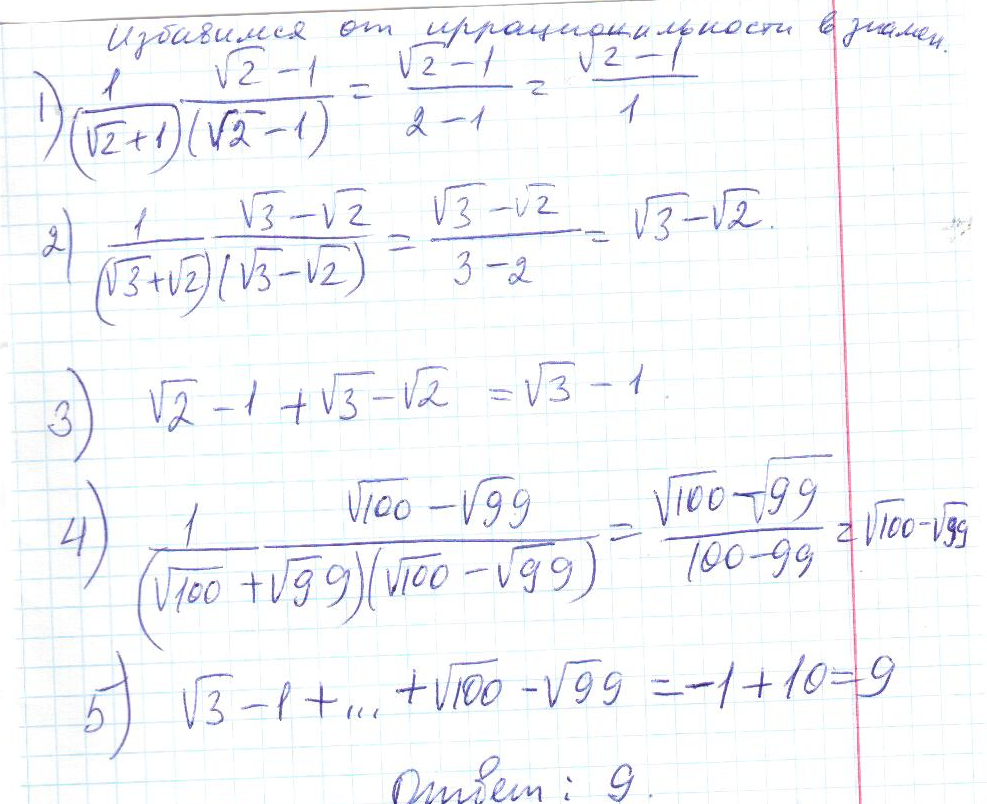 Избавимся от иррациональности в знамен.
1) \frac{1}{(√2+1)} \frac{√2-1}{(√2-1)} = \frac{√2-1}{2-1} = \frac{√2-1}{1}
2) \frac{1}{(√3+√2)} \frac{√3-√2}{(√3-√2)} = \frac{√3-√2}{3-2} = √3-√2.
3) √2-1+√3-√2 = √3-1.
4) \frac{1}{(√100+√99)} \frac{√100-√99}{(√100-√99)} = \frac{√100-√99}{100-99} = √100-√99
5) √3-1+...+√100-√99 = -1+10=9
Ответ: 9.